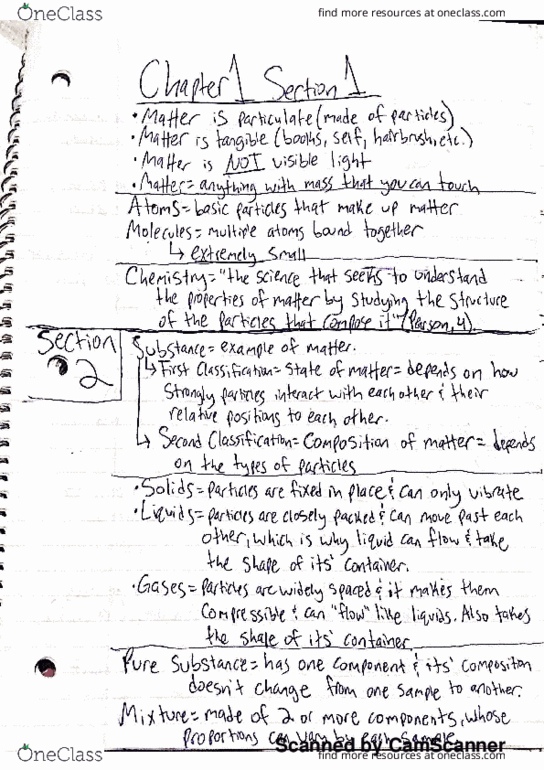 OneClass
find more resources at oneclass.com
Chapter 1 Section 1
• Matter is particulate (made of particles)
• Matter is tangible (books, self, hairbrush, etc.)
• Matter is NOT visible light
• Matter = anything with mass that you can touch
Atoms = basic particles that make up matter
Molecules = multiple atoms bound together
↳ extremely small
Chemistry = "the science that seeks to understand
the properties of matter by studying the structure
of the particles that compose it" (Pearson, 4)
Section
2
Substance = example of matter.
↳ First Classification = State of matter = depends on how
strongly particles interact with each other & their
relative positions to each other.
↳ Second Classification = Composition of matter = depends
on the types of particles
• Solids = particles are fixed in place & can only vibrate
• Liquids = particles are closely packed & can move past each
other, which is why liquid can flow & take
the shape of its' container.
• Gases = particles are widely spaced & it makes them
compressible & can "flow" like liquids. Also takes
the shape of its' container
Pure Substance = has one component & its' composition
doesn't change from one sample to another.
Mixture = made of 2 or more components, whose
proportions can vary by each sample
Scanned by CamScanner
OneClass
find more resources at oneclass.com